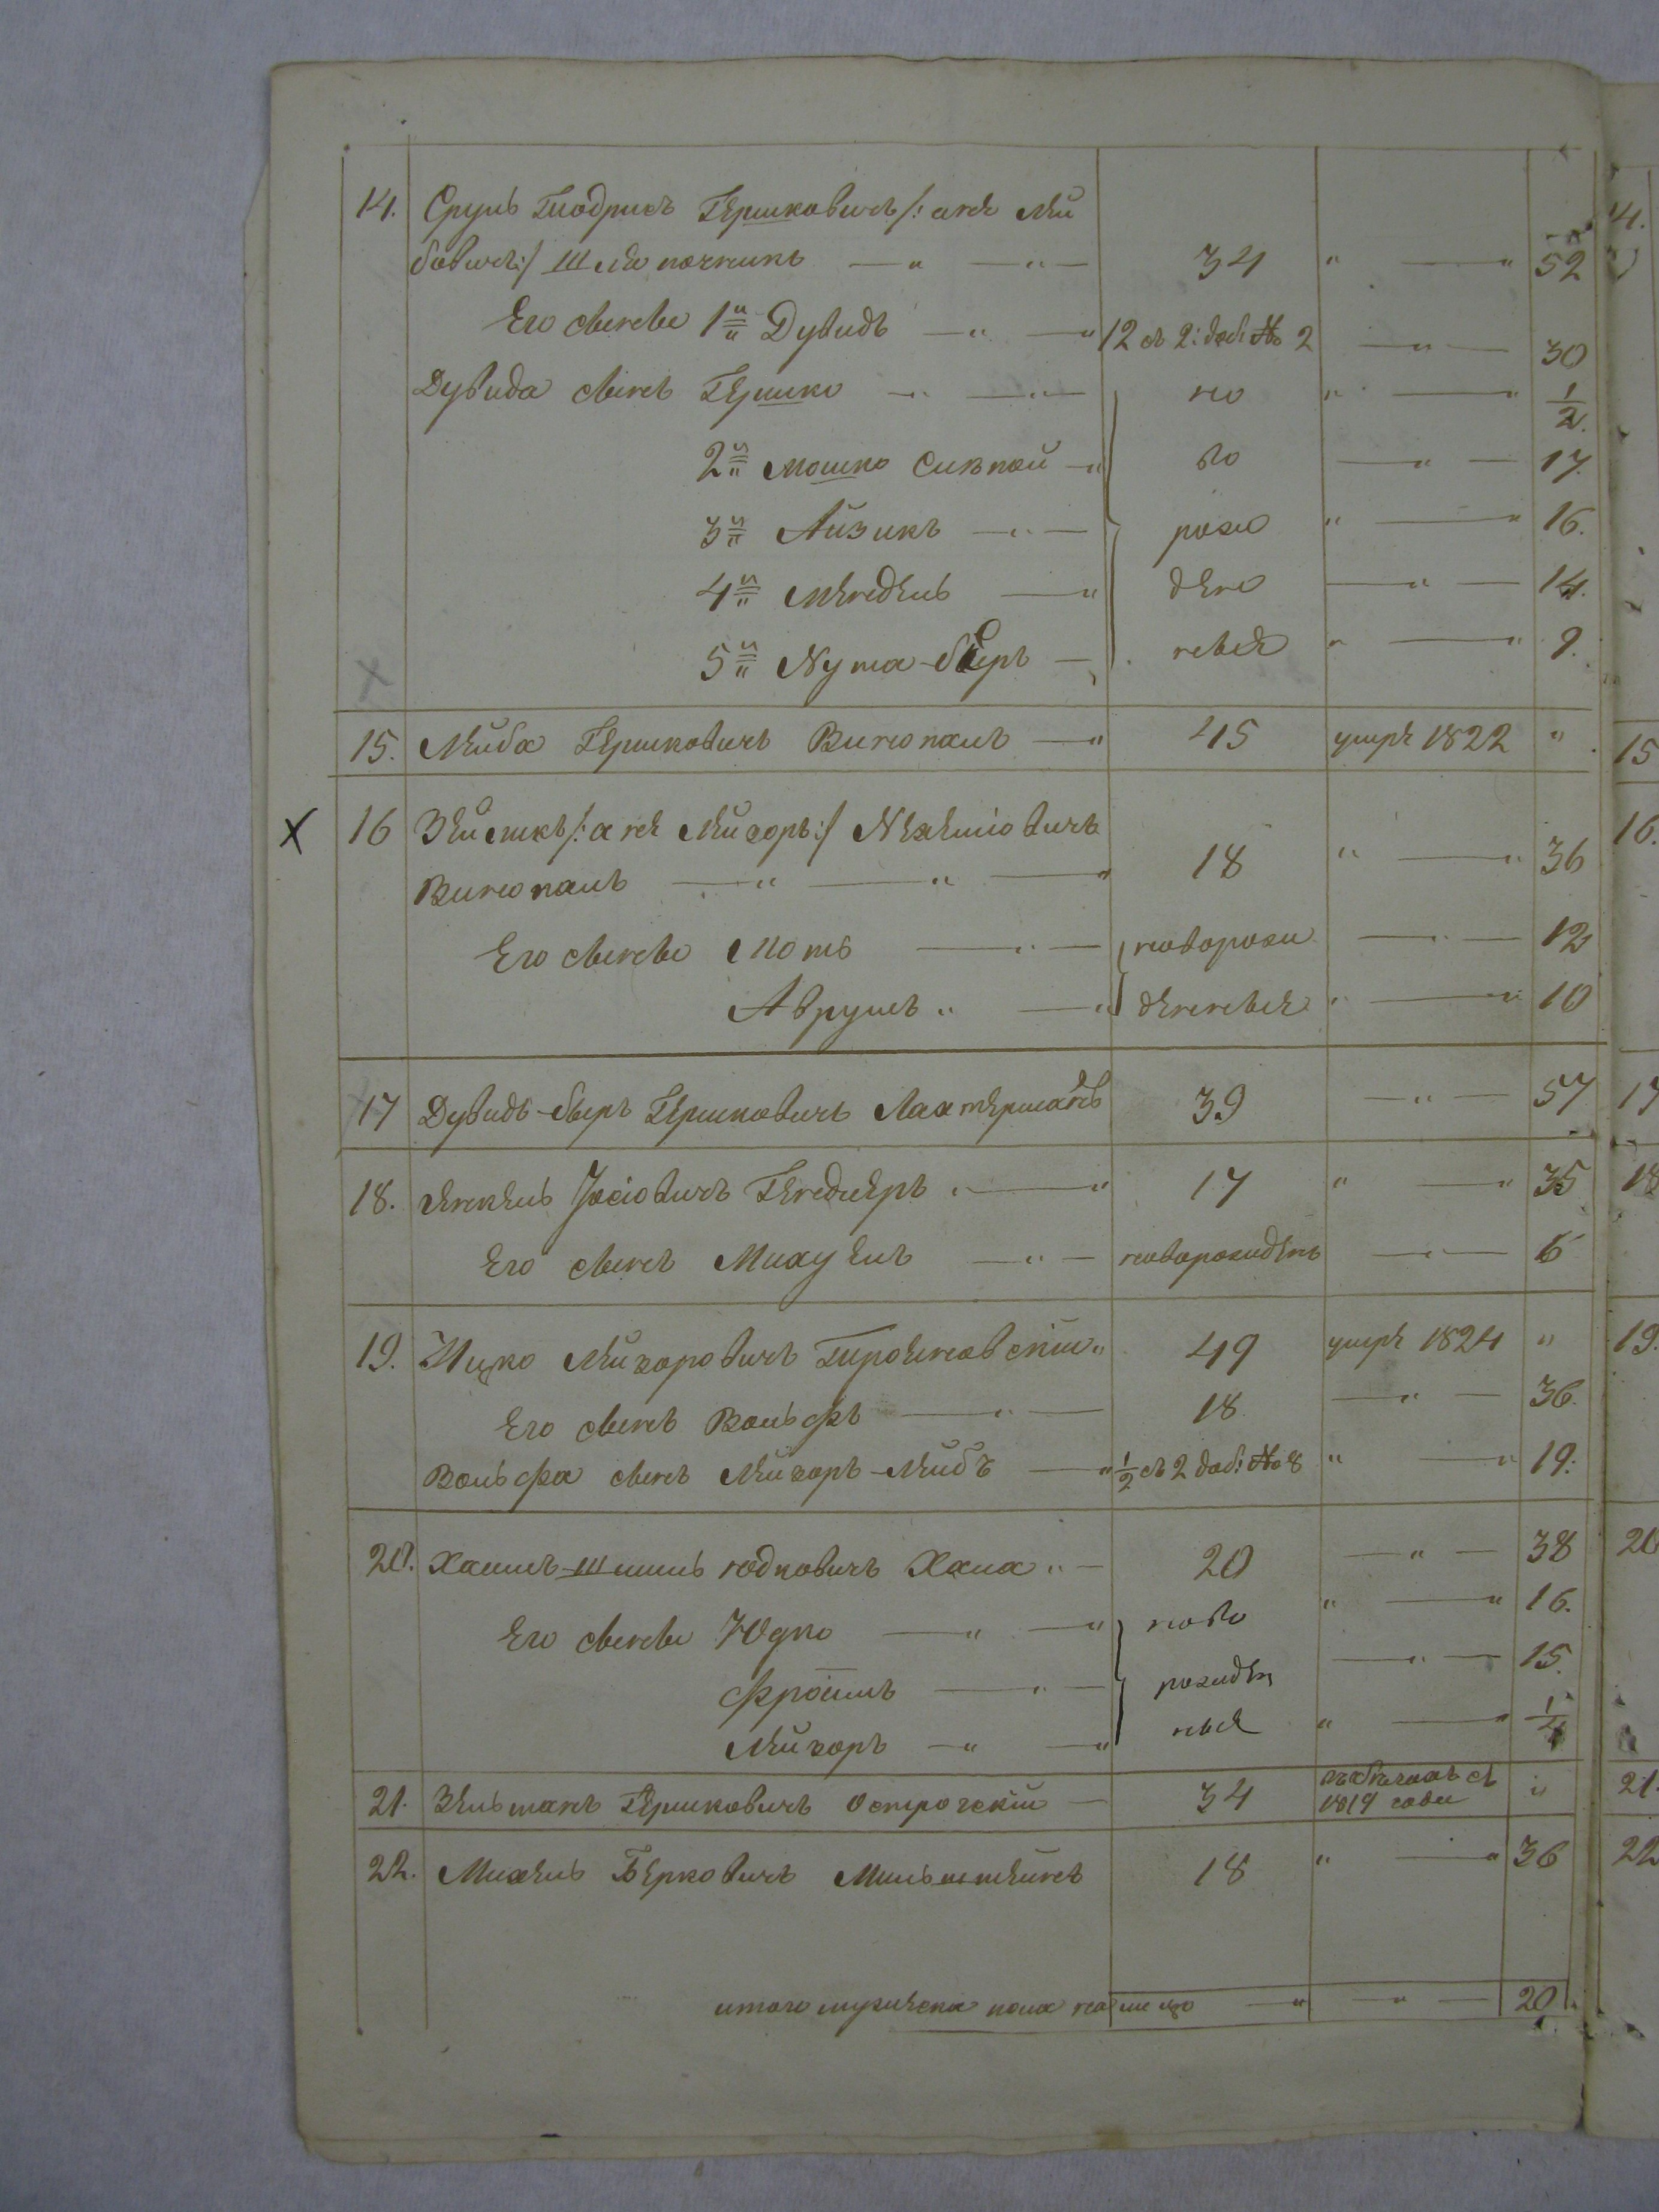 14. Сруль Тодрисъ Гершковичъ /: а не Лей
бовичъ :/ Шлапочникъ — " — " — 34 " — " 52
Его сыновья 1й Дувидъ — " — " 12 съ 2: доб: № 2 — " — 30
Дувида сынъ Гершко — " — " — но " — " 1/2.
2й Мошко Сивкой — " во — " — 17.
3й Айзикъ — " — рож " — " 16.
4й Мендель — " ден — " — 14.
5й Нута-Беръ — ные " — " 9.
15. Лейба Гершковичъ — " 45 умре 1822 "
16 Зейликъ /: а не Лейзоръ :/ Нехеміовичъ
— " — " — " 18 " — " 36
Его сыновья Мотъ — " — новорож — " — 12
Аврумъ " — " денные " — " 10
17 Дувидъ-Беръ Гершковичъ Лахтерманъ 39 — " — 57
18. Янкель Іосіовичъ Гендлеръ " — " 17 " — " 35
Его сынъ — " — новорожденъ — " — 6
19. Ицко Лейзоровичъ " 49 умре 1824 "
Его сынъ Вольфъ — " — 18 — " — 36.
Вольфа сынъ Лейзоръ-Лейбъ — " 1/2 съ 2 доб: № 8 " — " 19.
20. Хаимъ-Шлиль Юдковичъ Хаша " — 20 — " — 38
Его сыновья Юдко — " — " ново " — " 16.
Фроимъ — " — рожден — " — 15.
Лейзоръ — " — " ные " — " 1/4
21. Зельманъ Гершковичъ Острогскій — 34 съ "
1819 года
22. Михель Берковичъ Мильштейнъ 18 " — " 36
итого мужеска пола налицо — " — " — 20
4.
15
16.
17
18
19.
20
21.
22